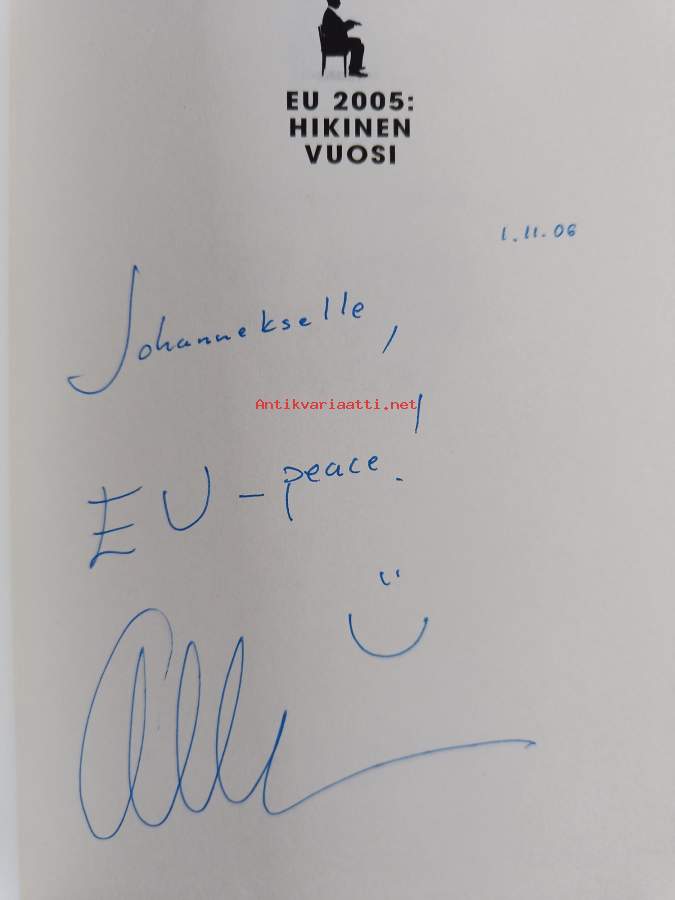 EU 2005:
HIKINEN
VUOSI
1.11.06
Johannekselle,
Antikvariaatti.net
EU-peace!